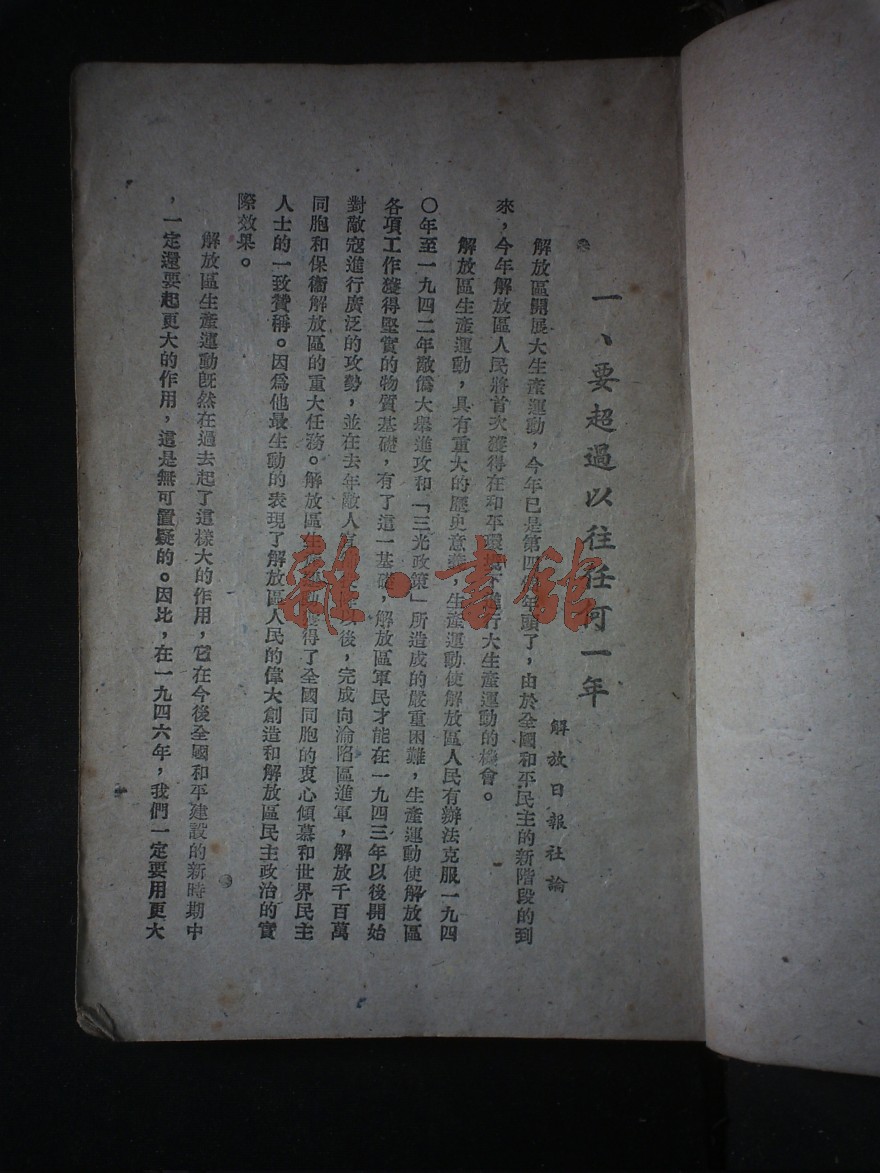 一、要超過以往任何一年
解放日報社論
解放區開展大生產運動，今年已是第四個年頭了，由於全國和平民主的新階段的到
來，今年解放區人民將首次獲得在和平環境下進行大生產運動的機會。
解放區生產運動，具有重大的歷史意義，生產運動使解放區人民有辦法克服一九四
〇年至一九四二年敵僞大舉進攻和「三光政策」所造成的嚴重困難，生產運動使解放區
各項工作獲得堅實的物質基礎，有了這一基礎，解放區軍民才能在一九四三年以後開始
對敵寇進行廣泛的攻勢，並在去年敵人以後，完成向淪陷區進軍，解放千百萬
同胞和保衞解放區的重大任務。解放區生產運動獲得了全國同胞的衷心傾慕和世界民主
人士的一致贊稱。因爲他最生動的表現了解放區人民的偉大創造和解放區民主政治的實
際效果。
解放區生產運動旣然在過去起了這樣大的作用，它在今後全國和平建設的新時期中
，一定還要起更大的作用，這是無可置疑的。因比，在一九四六年，我們一定要用更大
雜·書館